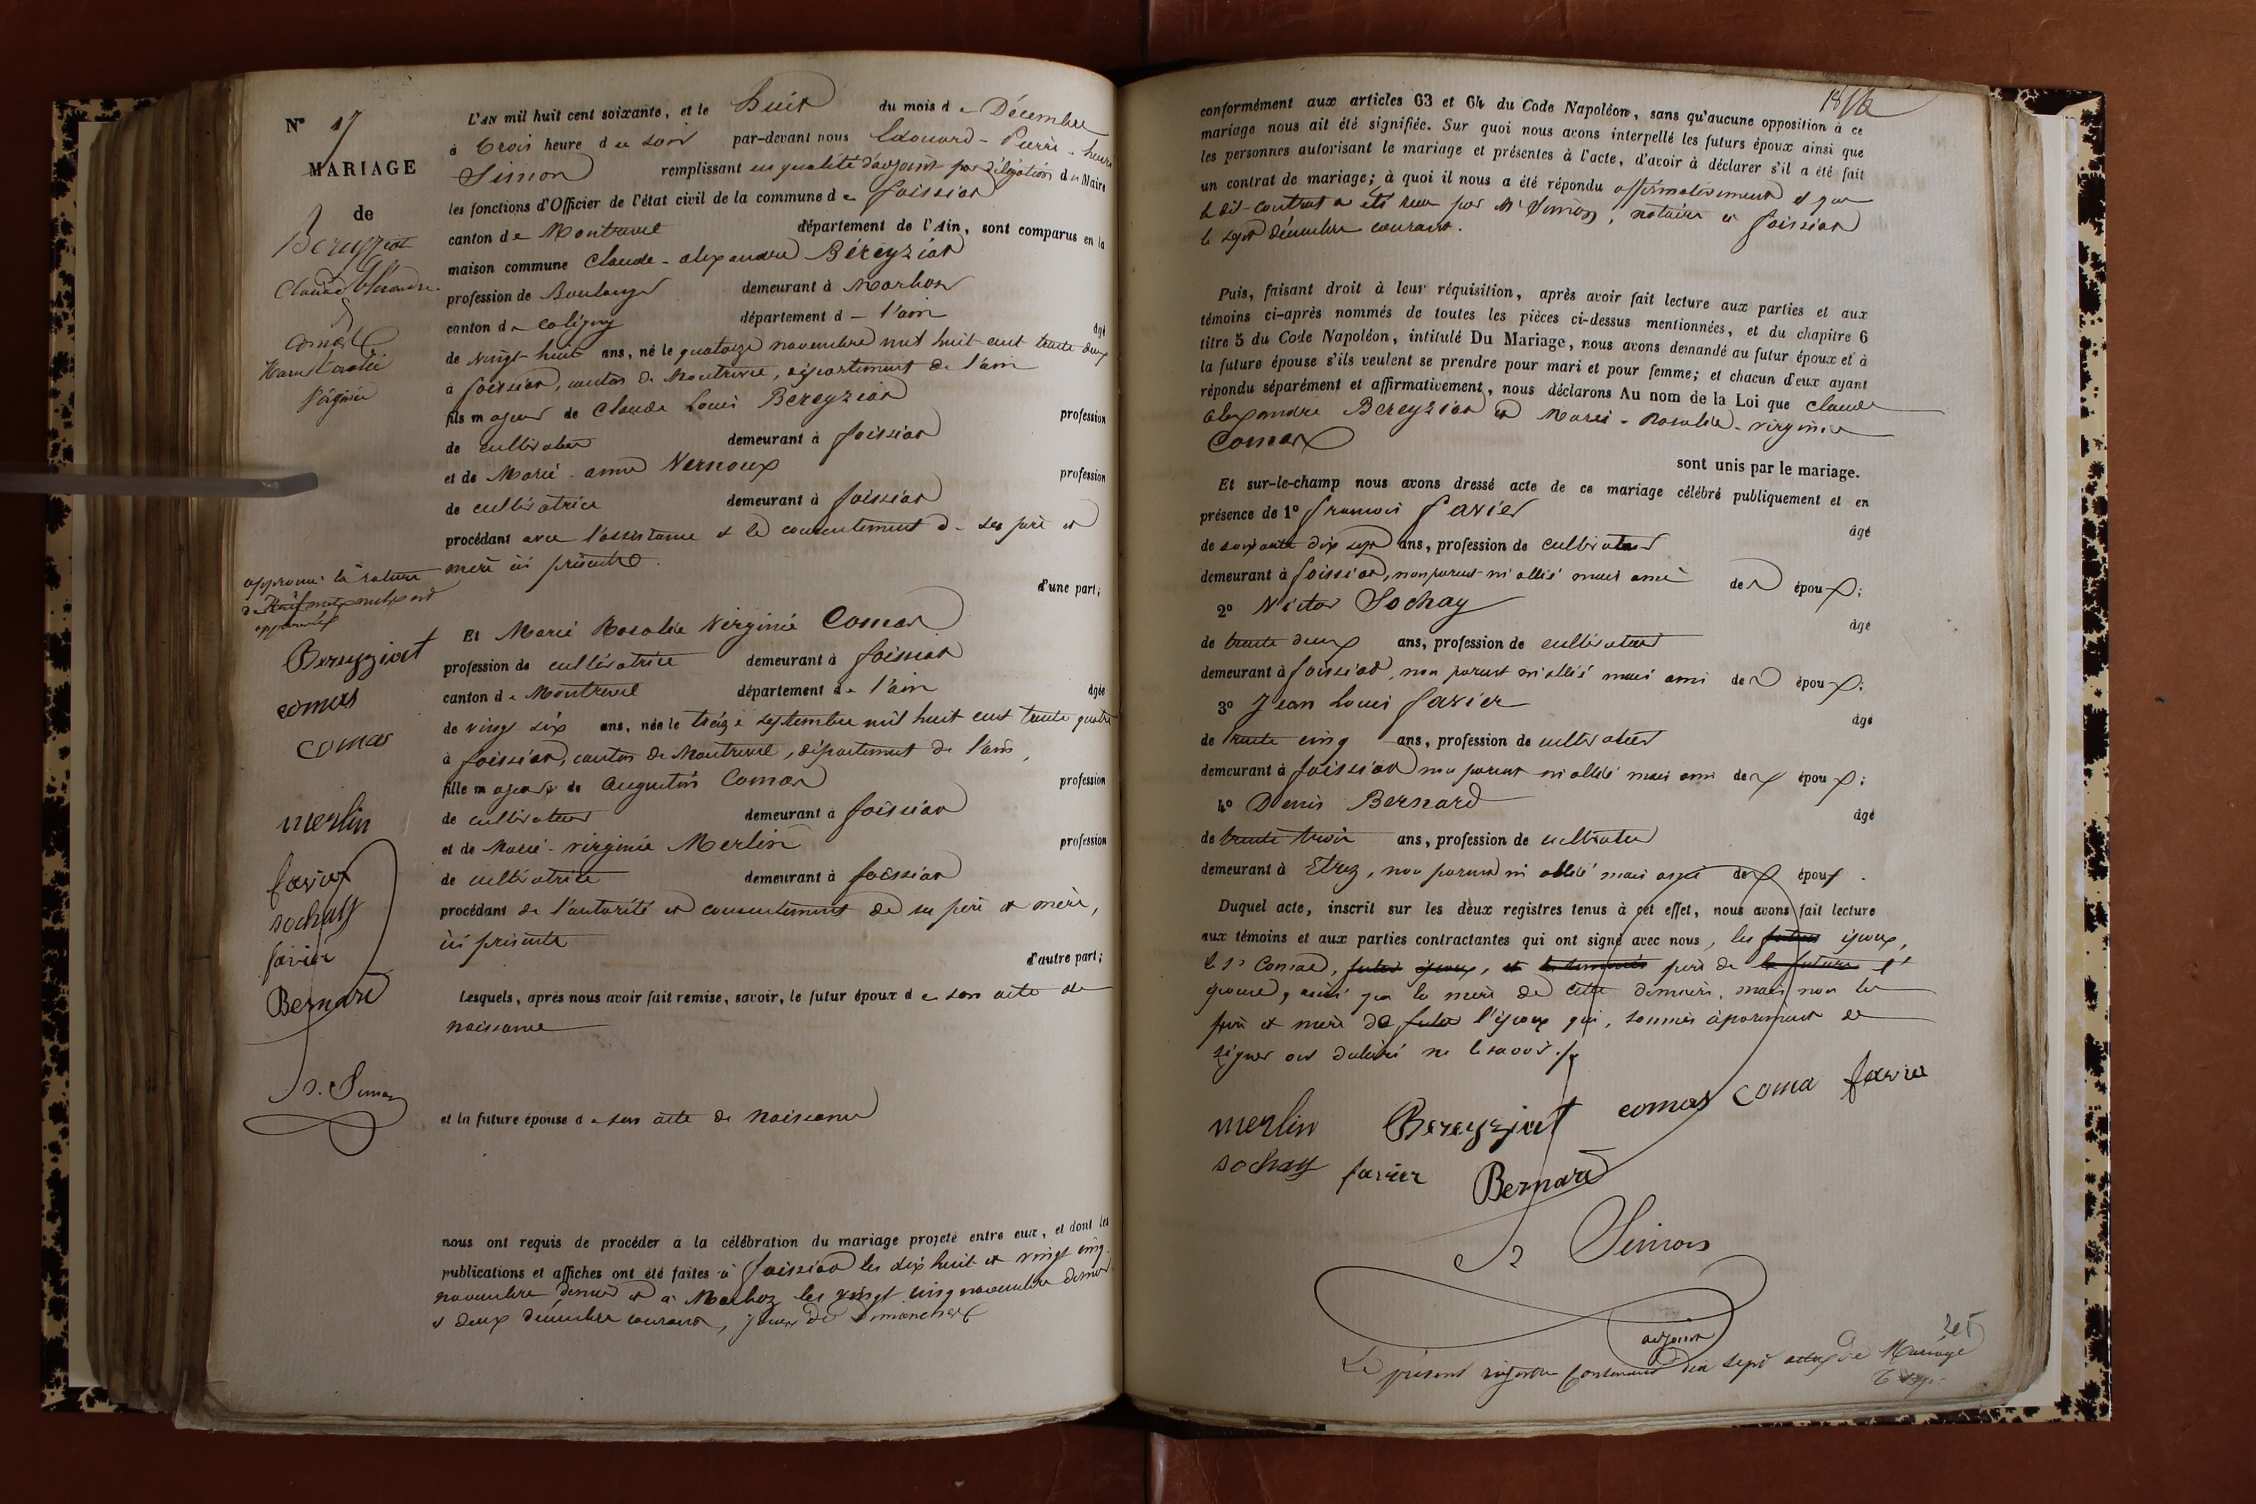 N° 17
MARIAGE
de
Bereyziat
Claude Alexandre
&
Comas
Marie Rosalie
Virginie
L'AN mil huit cent soixante, et le huit du mois de Décembre
à trois heure du soir par-devant nous Edouard - Pierre - henri
Simon remplissant en qualité d'adjoint par délégation du Maire
les fonctions d'Officier de l'état civil de la commune de foissiat
canton de Montrevel département de l'Ain, sont comparus en la
maison commune Claude - alexandre Béréyziat
profession de Boulanger demeurant à Marboz
canton de Coligny département d - l'ain âgé
de vingt-huit ans, né le quatorze novembre mil huit-cent trente deux
à foissiat, canton de Montrevel, département de l'ain
fils majeur de Claude Louis Bereyziat profession
de cultivateur demeurant à foissiat
et de Marie - anne Vernoux profession
de cultivatrice demeurant à foissiat
procédant avec l'assistance et le consentement d - ses père et
mère ici présents.
d'une part;
approuvé la rature
Bereyziat
comas
comas
merlin
favier
sochay
favier
Bernard
Simon
Et Marie Rosalie Virginie Comas
profession de cultivatrice demeurant à foissiat
canton de Montrevel département de l'ain âgée
de vingt six ans, née le treize septembre mil huit cent trente quatre
à foissiat, canton de Montrevel, département de l'ain,
fille majeure de Augustin Comas profession
de cultivateur demeurant à foissiat
et de Marie - virginie Merlin profession
de cultivatrice demeurant à foissiat
procédant de l'autorité et consentement de ses père et mère,
ici présents
d'autre part;
Lesquels, après nous avoir fait remise, savoir, le futur époux de son acte de
naissance
et la future épouse de son acte de naissance
nous ont requis de procéder à la célébration du mariage projeté entre eux, et dont les
publications et affiches ont été faites à foissiat les dix huit et vingt cinq
novembre dernier et à Marboz les vingt cinq novembre dernier
et deux décembre courant, jours de dimanches
conformément aux articles 63 et 64 du Code Napoléon, sans qu'aucune opposition à ce
mariage nous ait été signifiée. Sur quoi nous avons interpellé les futurs époux ainsi que
les personnes autorisant le mariage et présentes à l'acte, d'avoir à déclarer s'il a été fait
un contrat de mariage; à quoi il nous a été répondu affirmativement et que
le dit contrat a été reçu par Mr Simon, notaire à foissiat
le sept décembre courant.
Puis, faisant droit à leur réquisition, après avoir fait lecture aux parties et aux
témoins ci-après nommés de toutes les pièces ci-dessus mentionnées, et du chapitre 6
titre 5 du Code Napoléon, intitulé Du Mariage, nous avons demandé au futur époux et à
la future épouse s'ils veulent se prendre pour mari et pour femme; et chacun d'eux ayant
répondu séparément et affirmativement, nous déclarons Au nom de la Loi que Claude
Alexandre Bereyziat et Marie - Rosalie - virginie
Comas
sont unis par le mariage.
Et sur-le-champ nous avons dressé acte de ce mariage célébré publiquement et en
présence de 1° francois favier âgé
de soixante dix sept ans, profession de cultivateur
demeurant à foissiat, non parent ni allié mais ami des époux;
2° Victor Sochay âgé
de trente deux ans, profession de cultivateur
demeurant à foissiat, non parent ni allié mais ami des époux;
3° Jean Louis favier âgé
de trente cinq ans, profession de cultivateur
demeurant à foissiat non parent ni allié mais ami des époux;
4° Denis Bernard âgé
de trente trois ans, profession de cultivateur
demeurant à Etrez, non parent ni allié mais ami des époux.
Duquel acte, inscrit sur les deux registres tenus à cet effet, nous avons fait lecture
aux témoins et aux parties contractantes qui ont signé avec nous, les futurs époux,
le Sr Comas, futur époux, et les témoins père de la future l'
épouse, ainsi que la mère de cette dernière, mais non les
père et mère de futur l'époux qui, sommés séparément de
signer ont déclaré ne le savoir.
merlin Bereyziat comas coma favier
sochay favier Bernard
Simon
adjoint
Le présent registre contenant dix sept actes de Mariage